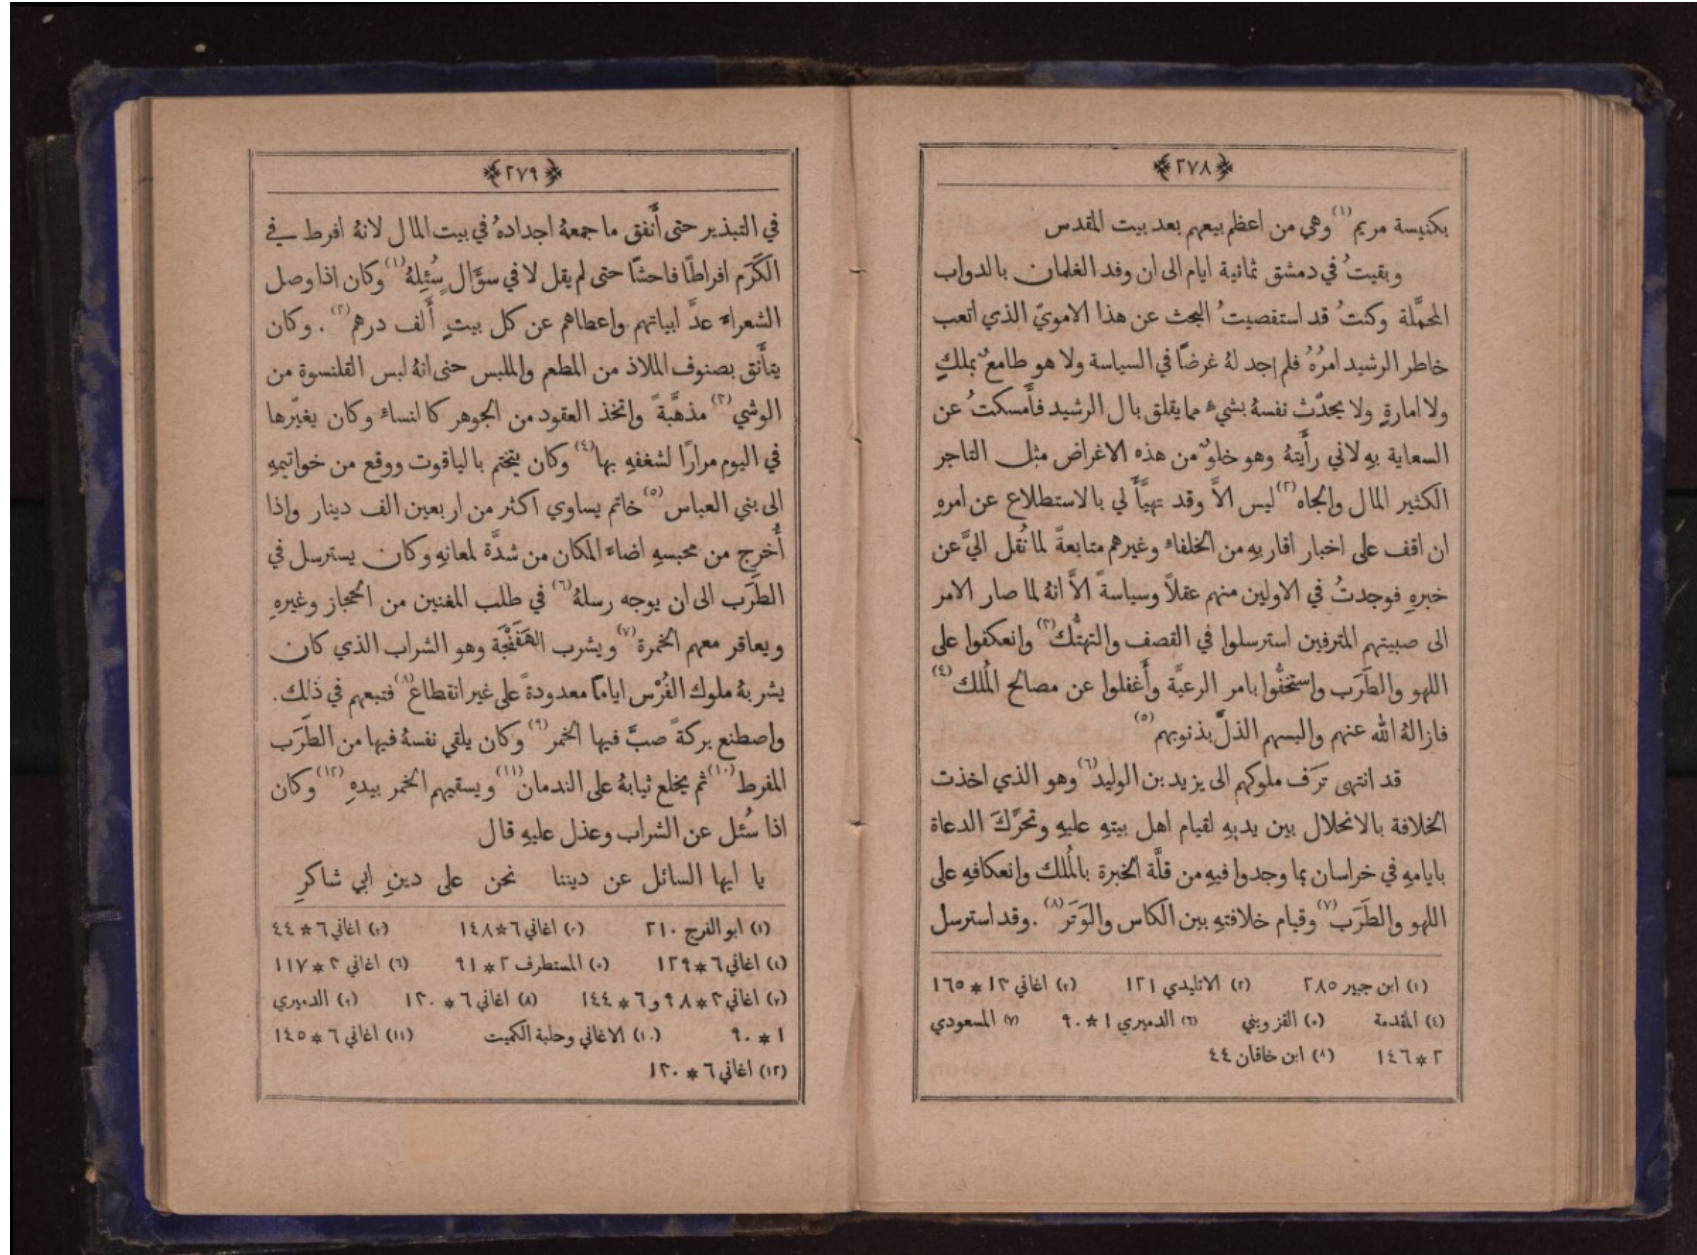 ﴿٢٧٨﴾
بكنيسة مريم (١) وهي من اعظم بيعهم بعد بيت المقدس
وبقيتُ في دمشق ثمانية ايام الى ان وفد الغلمان بالدواب
المحمَّلة وكنتُ قد استقصيتُ البحث عن هذا الامويّ الذي اتعب
خاطر الرشيد امرُهُ فلم اجد لهُ غرضًا في السياسة ولا هو طامعٌ بملكٍ
ولا امارةٍ ولا يحدّث نفسهُ بشيءٍ مما يقلق بال الرشيد فأَمسكتُ عن
السعاية بهِ لاني رأَيتهُ وهو خلوٌ من هذه الاغراض مثل التاجر
الكثير المال والجاه (٢) ليس الاَّ وقد تهيَّأَ لي بالاستطلاع عن امرهِ
ان اقف على اخبار اقاربهِ من الخلفاء وغيرهم متابعةً لما نُقل اليَّ عن
خبرهِ فوجدتُ في الاولين منهم عقلاً وسياسةً الاَّ انهُ لما صار الامر
الى صبيتهم المترفين استرسلوا في القصف والتهتُّك (٣) وانعكفوا على
اللهو والطَرَب واستخفُّوا بامر الرعيَّة وأَغفلوا عن مصالح المُلك (٤)
فازالهُ الله عنهم والبسهم الذلَّ بذنوبهم (٥)
قد انتهى تَرَف ملوكهم الى يزيد بن الوليد (٦) وهو الذي اخذت
الخلافة بالانحلال بين يديهِ لقيام اهل بيتهِ عليهِ وتحرُّك الدعاة
بايامهِ في خراسان بما وجدوا فيهِ من قلَّة الخبرة بالمُلك وانعكافهِ على
اللهو والطَرَب (٧) وقيام خلافتهِ بين الكاس والوَتَر (٨) . وقد استرسل
(١) ابن جبير ٢٨٥ (٢) الاتليدي ١٢١ (٣) اغاني ١٢ * ١٦٥
(٤) المقدمة (٥) القزويني (٦) الدميري ١ * ٩٠ (٧) المسعودي
٢ * ١٤٦ (٨) ابن خاقان ٤٤
﴿٢٧٩﴾
في التبذير حتى أَنفق ما جمعهُ اجدادهُ في بيت المال لانهُ افرط في
الكَرَم افراطًا فاحشًا حتى لم يقل لا في سؤَال سُئِلهُ (١) وكان اذا وصل
الشعراء عدَّ ابياتهم واعطاهم عن كل بيتٍ أَلف درهم (٢) . وكان
يتأَنق بصنوف الملاذ من المطعم والملبس حتى انهُ لبس القلنسوة من
الوشي (٣) مذهَّبةً واتخذ العقود من الجوهر كالنساء وكان يغيّرها
في اليوم مرارًا لشغفهِ بها (٤) وكان يتختم بالياقوت ووقع من خواتيمهِ
الى بني العباس (٥) خاتم يساوي اكثر من اربعين الف دينار واذا
أُخرج من محبسهِ اضاء المكان من شدَّة لمعانهِ وكان يسترسل في
الطَرَب الى ان يوجه رسلهُ (٦) في طلب المغنين من الحجاز وغيرهِ
ويعاقر معهم الخمرة (٧) ويشرب الهَفْتَجَة وهو الشراب الذي كان
يشربهُ ملوك الفُرْس ايامًا معدودةً على غير انقطاع (٨) فتبعهم في ذلك .
واصطنع بركةً صبَّ فيها الخمر (٩) وكان يلقي نفسهُ فيها من الطَرَب
المفرط (١٠) ثم يخلع ثيابهُ على الندمان (١١) ويسقيهم الخمر بيدهِ (١٢) وكان
اذا سُئل عن الشراب وعذل عليهِ قال
يا ايها السائل عن ديننا نحن على دينِ ابي شاكرِ
(١) ابو الفرج ٢١٠ (٢) اغاني ٦ * ١٤٨ (٣) اغاني ٦ * ٤٤
(٤) اغاني ٦ * ١٢٩ (٥) المستطرف ٢ * ٩١ (٦) اغاني ٢ * ١١٧
(٧) اغاني ٢ * ٩٨ و ٦ * ١٤٤ (٨) اغاني ٦ * ١٢٠ (٩) الدميري
١ * ٩٠ (١٠) الاغاني وحلبة الكميت (١١) اغاني ٦ * ١٤٥
(١٢) اغاني ٦ * ١٢٠